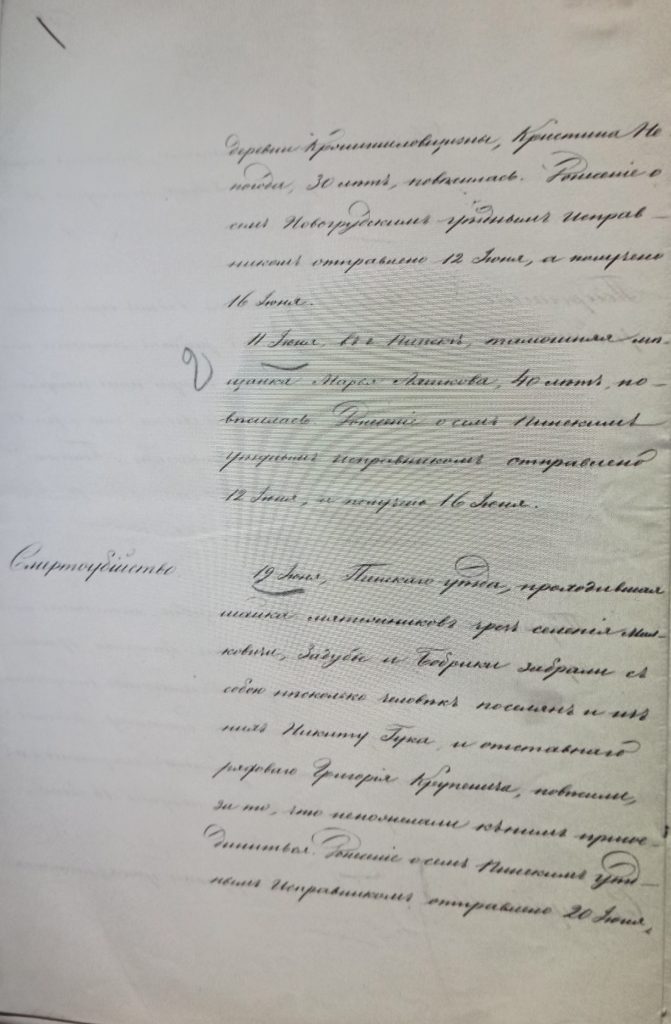 деревни Кромшиловщизны, Кристина Не
погода, 30 лѣтъ, повѣсилась. Донесеніе о
семъ Новогрудскимъ уѣзднымъ Исправ-
никомъ отправлено 12 Іюня, а получено
16 Іюня.
11 Іюня, въ г. Пинскѣ, тамошняя мѣ-
щанка Марья Ляшкова, 40 лѣтъ, по-
вѣсилась. Донесеніе о семъ Пинскимъ
уѣзднымъ исправникомъ отправлено
12 Іюня, а получено 16 Іюня.
Смертоубійство
19 Іюня, Пинскаго уѣзда, проходившая
шайка мятежниковъ чрезъ селенія Маль-
ковичи, Задубье и Бобрики забрали съ
собою нѣсколько человѣкъ поселянъ и изъ
нихъ Никиту Гука и отставнаго
рядоваго Григорія Крупенича, повѣсили,
за то, что непожелали къ нимъ присое-
диниться. Донесеніе о семъ Пинскимъ уѣзд-
нымъ Исправникомъ отправлено 20 Іюня,